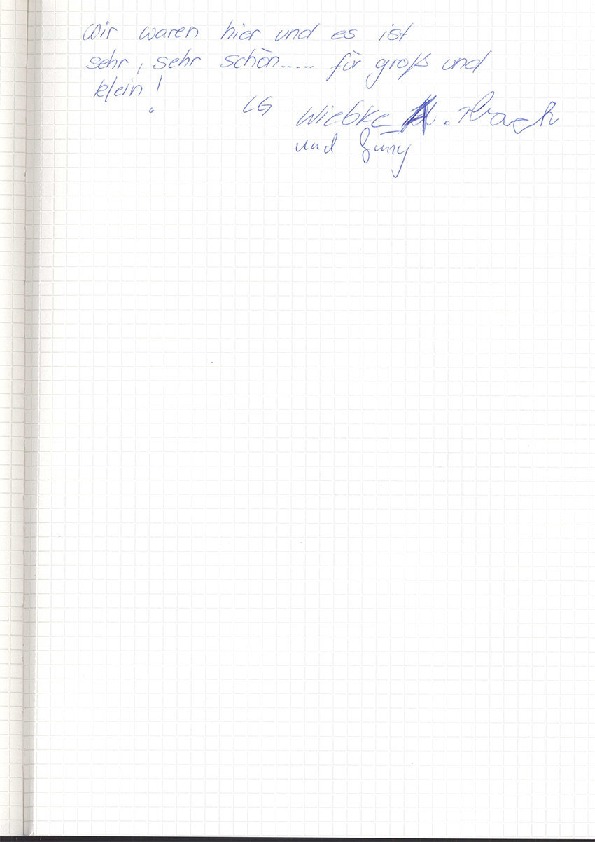 Wir waren hier und es ist
sehr, sehr schön..... für groß und
klein!
LG Wiebke
und